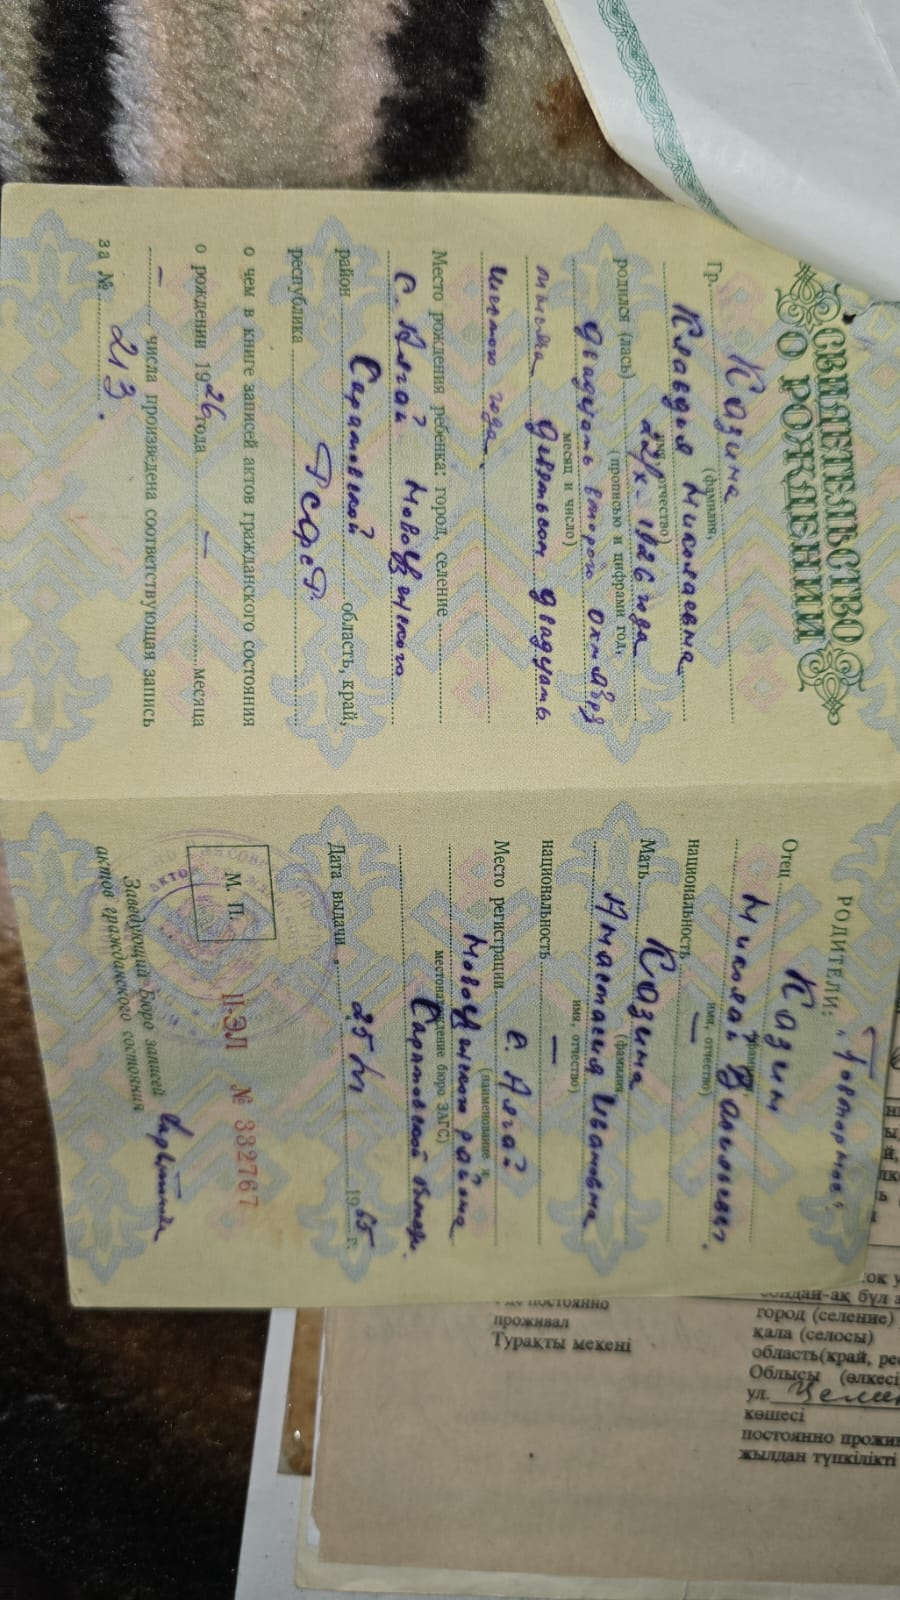 СВИДЕТЕЛЬСТВО
О РОЖДЕНИИ
Гр. Казина
(фамилия,
Клавдия Николаевна
имя, отчество)
родился (лась) 22/X-1926 года
(прописью и цифрами год,
двадцать второго октября
месяц и число)
тысяча девятьсот двадцать
шестого года
Место рождения ребенка: город, селение
с. Алгай Новоузенского
район
Саратовской область, край,
республика РСФСР.
о чем в книге записей актов гражданского состояния
о рождении 1926 года — месяца
— числа произведена соответствующая запись
за № 213.
РОДИТЕЛИ: „Повторное"
Отец Казин
фамилия,
Николай Васильевич.
имя, отчество)
национальность —
Мать Казина
(фамилия,
Анастасия Ивановна
имя, отчество)
национальность —
Место регистрации с. Алгай
(наименование и
Новоузенского района
местонахождение бюро ЗАГС)
Саратовской области.
Дата выдачи „ 25/VI 1965 г.
М. П.
II-ЭЛ № 332767
Заведующий Бюро записей
актов гражданского состояния
постоянно
проживал
Тұрақты мекені
город (селение)
қала (селосы)
область(край, рес
Облысы (өлкесі
ул.
көшесі
постоянно прожив
жылдан түпкілікті